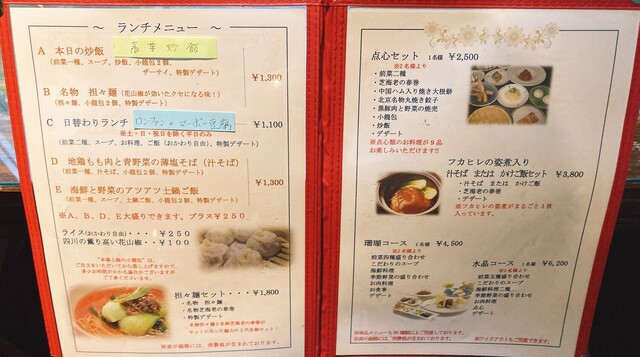 ～ ランチメニュー ～
A 本日の炒飯
高菜炒飯
(前菜一種、スープ、炒飯、小籠包２個、
ザーサイ、特製デザート)
¥1,300
B 名物 担々麺 (花山椒が効いたクセになる味！)
(担々麺、小籠包２個、特製デザート)
C 日替わりランチ
¥1,100
※土・日・祝日を除く平日のみ
(前菜二種、スープ、お料理、ご飯（おかわり自由）、特製デザート)
D 地鶏もも肉と青野菜の薄塩そば（汁そば）
(前菜一種、汁そば、小籠包２個、特製デザート)
¥1,300
E 海鮮と野菜のアツアツ土鍋ご飯
(前菜一種、スープ、土鍋ご飯、小籠包２個、特製デザート)
※A、B、D、E大盛りできます。プラス¥２５０
ライス(おかわり自由)・・・ ¥２５０
四川の薫り高い花山椒・・ ¥１００
担々麺セット・・・¥1,800
・名物 担々麺
・名物芝海老の春巻
・特製デザート
点心セット 1名様 ¥2,500
※2名様より
・前菜二種
・芝海老の春巻
・中国ハム入り焼き大根餅
・北京名物丸焼き餃子
・黒豚肉と野菜の焼売
・小籠包
・炒飯
・デザート
※点心館のお料理が９品
お楽しみいただけます!!
フカヒレの姿煮入り
汁そば または かけご飯セット ¥3,800
・汁そば または かけご飯
・芝海老の春巻
・デザート
※フカヒレの姿煮がまるごと１枚
入っています。
珊瑚コース 1名様 ¥4,500
※2名様より
前菜四種盛り合わせ
こだわりのスープ
海鮮料理
季節野菜の盛り合わせ
お肉料理
お食事
デザート
水晶コース 1名様 ¥6,200
※2名様より
前菜五種盛り合わせ
こだわりのスープ
海鮮料理二種
季節野菜の盛り合わせ
お肉料理
お食事
点心
デザート
※テイクアウトもご用意しております。